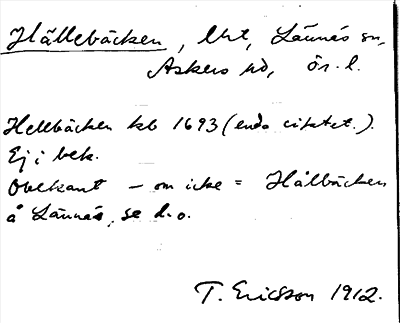 Hällebäcken, lht, Lännäs sn,
Askers hd, ör. l.
Hellbäcken kb 1693 (enda citatet.).
Ej i bek.
Obekant – om icke = Hålbäcken
å Lännäs, se d.o.
T. Ericsson 1912.